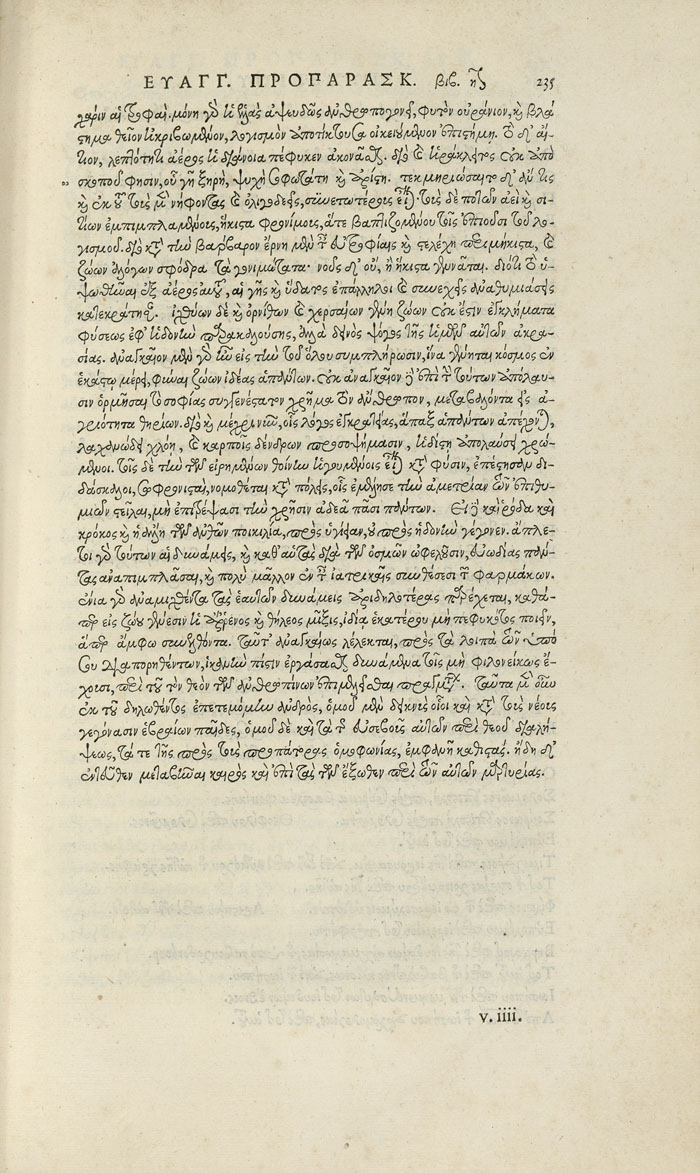 ΕΥΑΓΓ. ΠΡΟΠΑΡΑΣΚ. βιβ. η 235
χάριν αἱ τροφαί. μόνη γὰρ ἡ ἑλλὰς ἀψευδῶς ἀνθρωπογονεῖ, φυτὸν οὐράνιον, καὶ βλά
στημα θεῖον ἠκριβωμένον, λογισμὸν ἀποτίκτουσα οἰκειούμενον ἐπιστήμῃ. τὸ δ' αἴ-
τιον, λεπτότητι ἀέρος ἡ διάνοια πέφυκεν ἀκονᾶσθαι. διὸ καὶ ἡράκλειτος οὐκ ἀπὸ
σκοποῦ φησιν, οὗ γῆ ξηρὴ, ψυχὴ σοφωτάτη καὶ ἀρίστη. τεκμηριώσαιτο δ' ἄν τις
καὶ ἐκ τοῦ τοὺς μὲν νήφοντας καὶ ὀλιγοδεεῖς, συνετωτέρους εἶναι· τοὺς δὲ ποτῶν ἀεὶ καὶ σι-
τίων ἐμπιμπλαμένους, ἥκιστα φρονίμους, ἅτε βαπτιζομένου τοῖς ἐπιοῦσι τοῦ λο-
γισμοῦ. διὸ κατὰ τὴν βάρβαρον ἔρνη μὲν τῆς εὐτροφίαις καὶ στελέχη περιμήκιστα, καὶ
ζώων ἀλόγων σφόδρα τὰ γονιμώτατα· νοῦς δ' οὐ, ἢ ἥκιστα γεννᾶται. διότι τὸ ὑ-
ψωθῆναι ἐξ ἀέρος αὐτοῦ, αἱ γῆς καὶ ὕδατος ἐπάλληλοι καὶ συνεχεῖς ἀναθυμιάσεις
κατεκράτησαν. ἰχθύων δὲ καὶ ὀρνίθων καὶ χερσαίων γένη ζώων οὐκ ἔστιν ἐγκλήματα
φύσεως ἐφ' ἡδονὴν παρακαλούσης, ἀλλὰ δεινὸς ψόγος τῆς ἡμῶν αὐτῶν ἀκρα-
σίας. ἀναγκαῖον μὲν γὰρ ἦν εἰς τὴν τοῦ ὅλου συμπλήρωσιν, ἵνα γένηται κόσμος ἐν
ἑκάστῳ μέρει, φῦναι ζώων ἰδέας ἁπάντων. οὐκ ἀναγκαῖον δὲ ἐπὶ τὴν τούτων ἀπόλαυ-
σιν ὁρμῆσαι τὸ σοφίας συγγενέστατον χρῆμα τὸν ἄνθρωπον, μεταβαλόντα εἰς ἀ-
γριότητα θηρίων. διὸ καὶ μέχρι νῦν, οἷς λόγος ἐγκρατείας, ἅπαξ ἁπάντων ἀπέχονται,
λαχανώδει χλόῃ, καὶ καρποῖς δένδρων προσοψήμασιν, ἡδίστῃ ἀπολαύσει χρώ-
μενοι. τοῖς δὲ τὴν τῶν εἰρημένων θοίνην ἡγουμένοις εἶναι κατὰ φύσιν, ἐπέστησαν δι-
δάσκαλοι, σωφρονισταὶ, νομοθέται κατὰ πόλεις, οἷς ἐμέλησε τὴν ἀμετρίαν τῶν ἐπιθυ-
μιῶν στεῖλαι, μὴ ἐπιτρέψασι τὴν χρῆσιν ἀδεᾶ πᾶσι πάντων. Εἰ δὲ καὶ ῥόδα καὶ
κρόκος καὶ ἡ ἄλλη τῶν ἀνθῶν ποικιλία, πρὸς ὑγίειαν, οὐ πρὸς ἡδονὴν γέγονεν. ἄπλε-
τοι γὰρ τούτων αἱ δυνάμεις, καὶ καθ' αὑτὰς διὰ τῶν ὀσμῶν ὠφελοῦσιν, εὐωδίας πάν-
τας ἀναπιμπλᾶσαι, καὶ πολὺ μᾶλλον ἐν ταῖς ἰατρικαῖς συνθέσεσι τῶν φαρμάκων.
ἔνια γὰρ ἀναμιχθέντα τὰς ἑαυτῶν δυνάμεις ἀριδηλοτέρας παρέχεται, καθά-
περ εἰς ζώου γένεσιν ἡ ἄρρενος καὶ θήλεος μῖξις, ἰδίᾳ ἑκατέρου μὴ πεφυκότος ποιεῖν,
ἅπερ ἄμφω συνελθόντα. Ταῦτ' ἀναγκαίως λέλεκται, πρὸς τὰ λοιπὰ τῶν ὑπὸ
σοῦ διαπορηθέντων, ἱκανὴν πίστιν ἐργάσασθαι δυνάμενα τοῖς μὴ φιλονείκως ἔ-
χουσι, περὶ τοῦ τὸν θεὸν τῶν ἀνθρωπίνων ἐπιμελεῖσθαι πραγμάτων. Ταῦτα μὲν οὖν
ἐκ τοῦ δηλωθέντος ἐπετεμόμην ἀνδρὸς, ὁμοῦ μὲν δεικνὺς οἷοι καὶ κατὰ τοὺς νέους
γεγόνασιν ἑβραίων παῖδες, ὁμοῦ δὲ καὶ τὰ τῆς εὐσεβοῦς αὐτῶν περὶ θεοῦ διαλή-
ψεως, τά τε τῆς πρὸς τοὺς προπάτορας ὁμοφωνίας, ἐμφανῆ καθιστάς. ἤδη δ'
ἐντεῦθεν μεταβῆναι καιρὸς καὶ ἐπὶ τὰς τῶν ἔξωθεν περὶ τῶν αὐτῶν μαρτυρίας.
v. iiii.